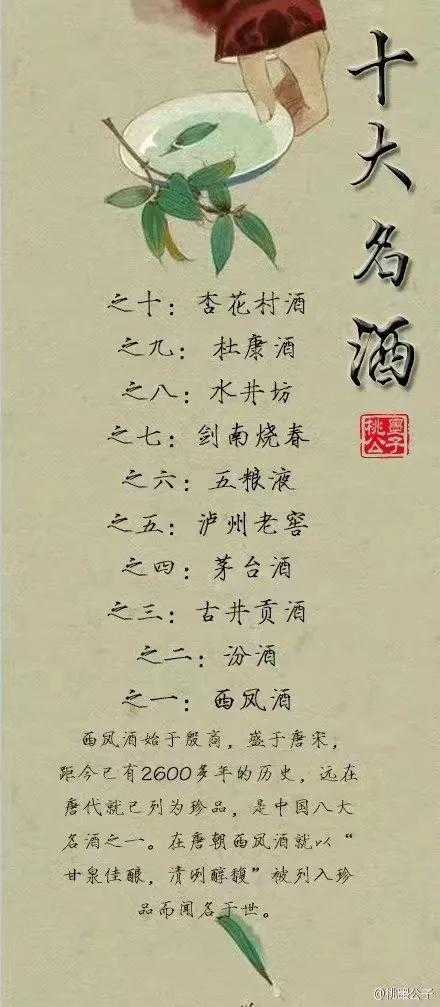 十大名酒
之十：杏花村酒
之九：杜康酒
之八：水井坊
之七：剑南烧春
之六：五粮液
之五：泸州老窖
之四：茅台酒
之三：古井贡酒
之二：汾酒
之一：西凤酒
西凤酒始于殷商，盛于唐宋，
距今已有2600多年的历史，远在
唐代就已列为珍品，是中国八大
名酒之一。在唐朝西凤酒就以“
甘泉佳酿，清冽醇馥”被列入珍
品而闻名于世。
@桃墨公子